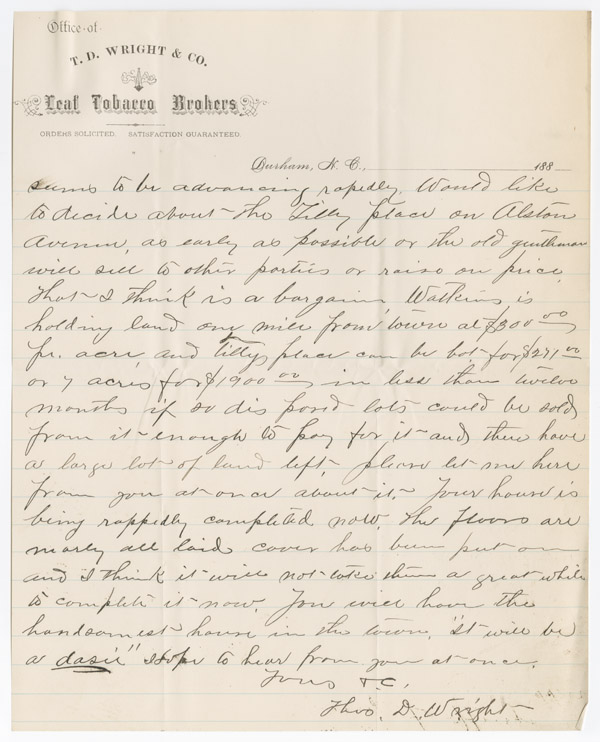 Office of
T. D. WRIGHT & CO.
Leaf Tobacco Brokers
ORDERS SOLICITED. SATISFACTION GUARANTEED.
Durham, N. C., 188
sums to be advancing rapedly. Would like
to decide about the Tilly place on Alston
Avenue, as early as possible or the old gentleman
will sell to other parties or raise on price
that I think is a bargain, Watkins is
holding land one mile from town at $300 00
pr. acre and Tillys place can be bot for $271 00
or 7 acres for $1900 00 in less than twelve
months if so dis posed lots could be sold
from it enough to pay for it and then have
a large lot of land left. please let me here
from you at once about it. Your house is
being rappedly completed now. The floors are
nearly all laid cover has been put on
and I think it will not take them a great while
to complete it now. You will have the
handsomest house in the town. "it will be
a dasie" I hope to hear from you at once.
Yours &C.
Thos. D. Wright